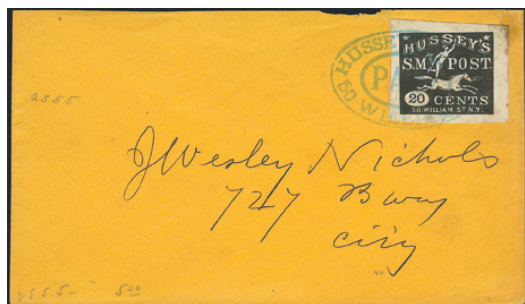 HUSSEY'S
S.M. POST.
20 CENTS
50. WILLIAM ST. N.Y.
HUSSE
PA
2555
J Wesley Nichols
727 Bway
City
2555-
5.00